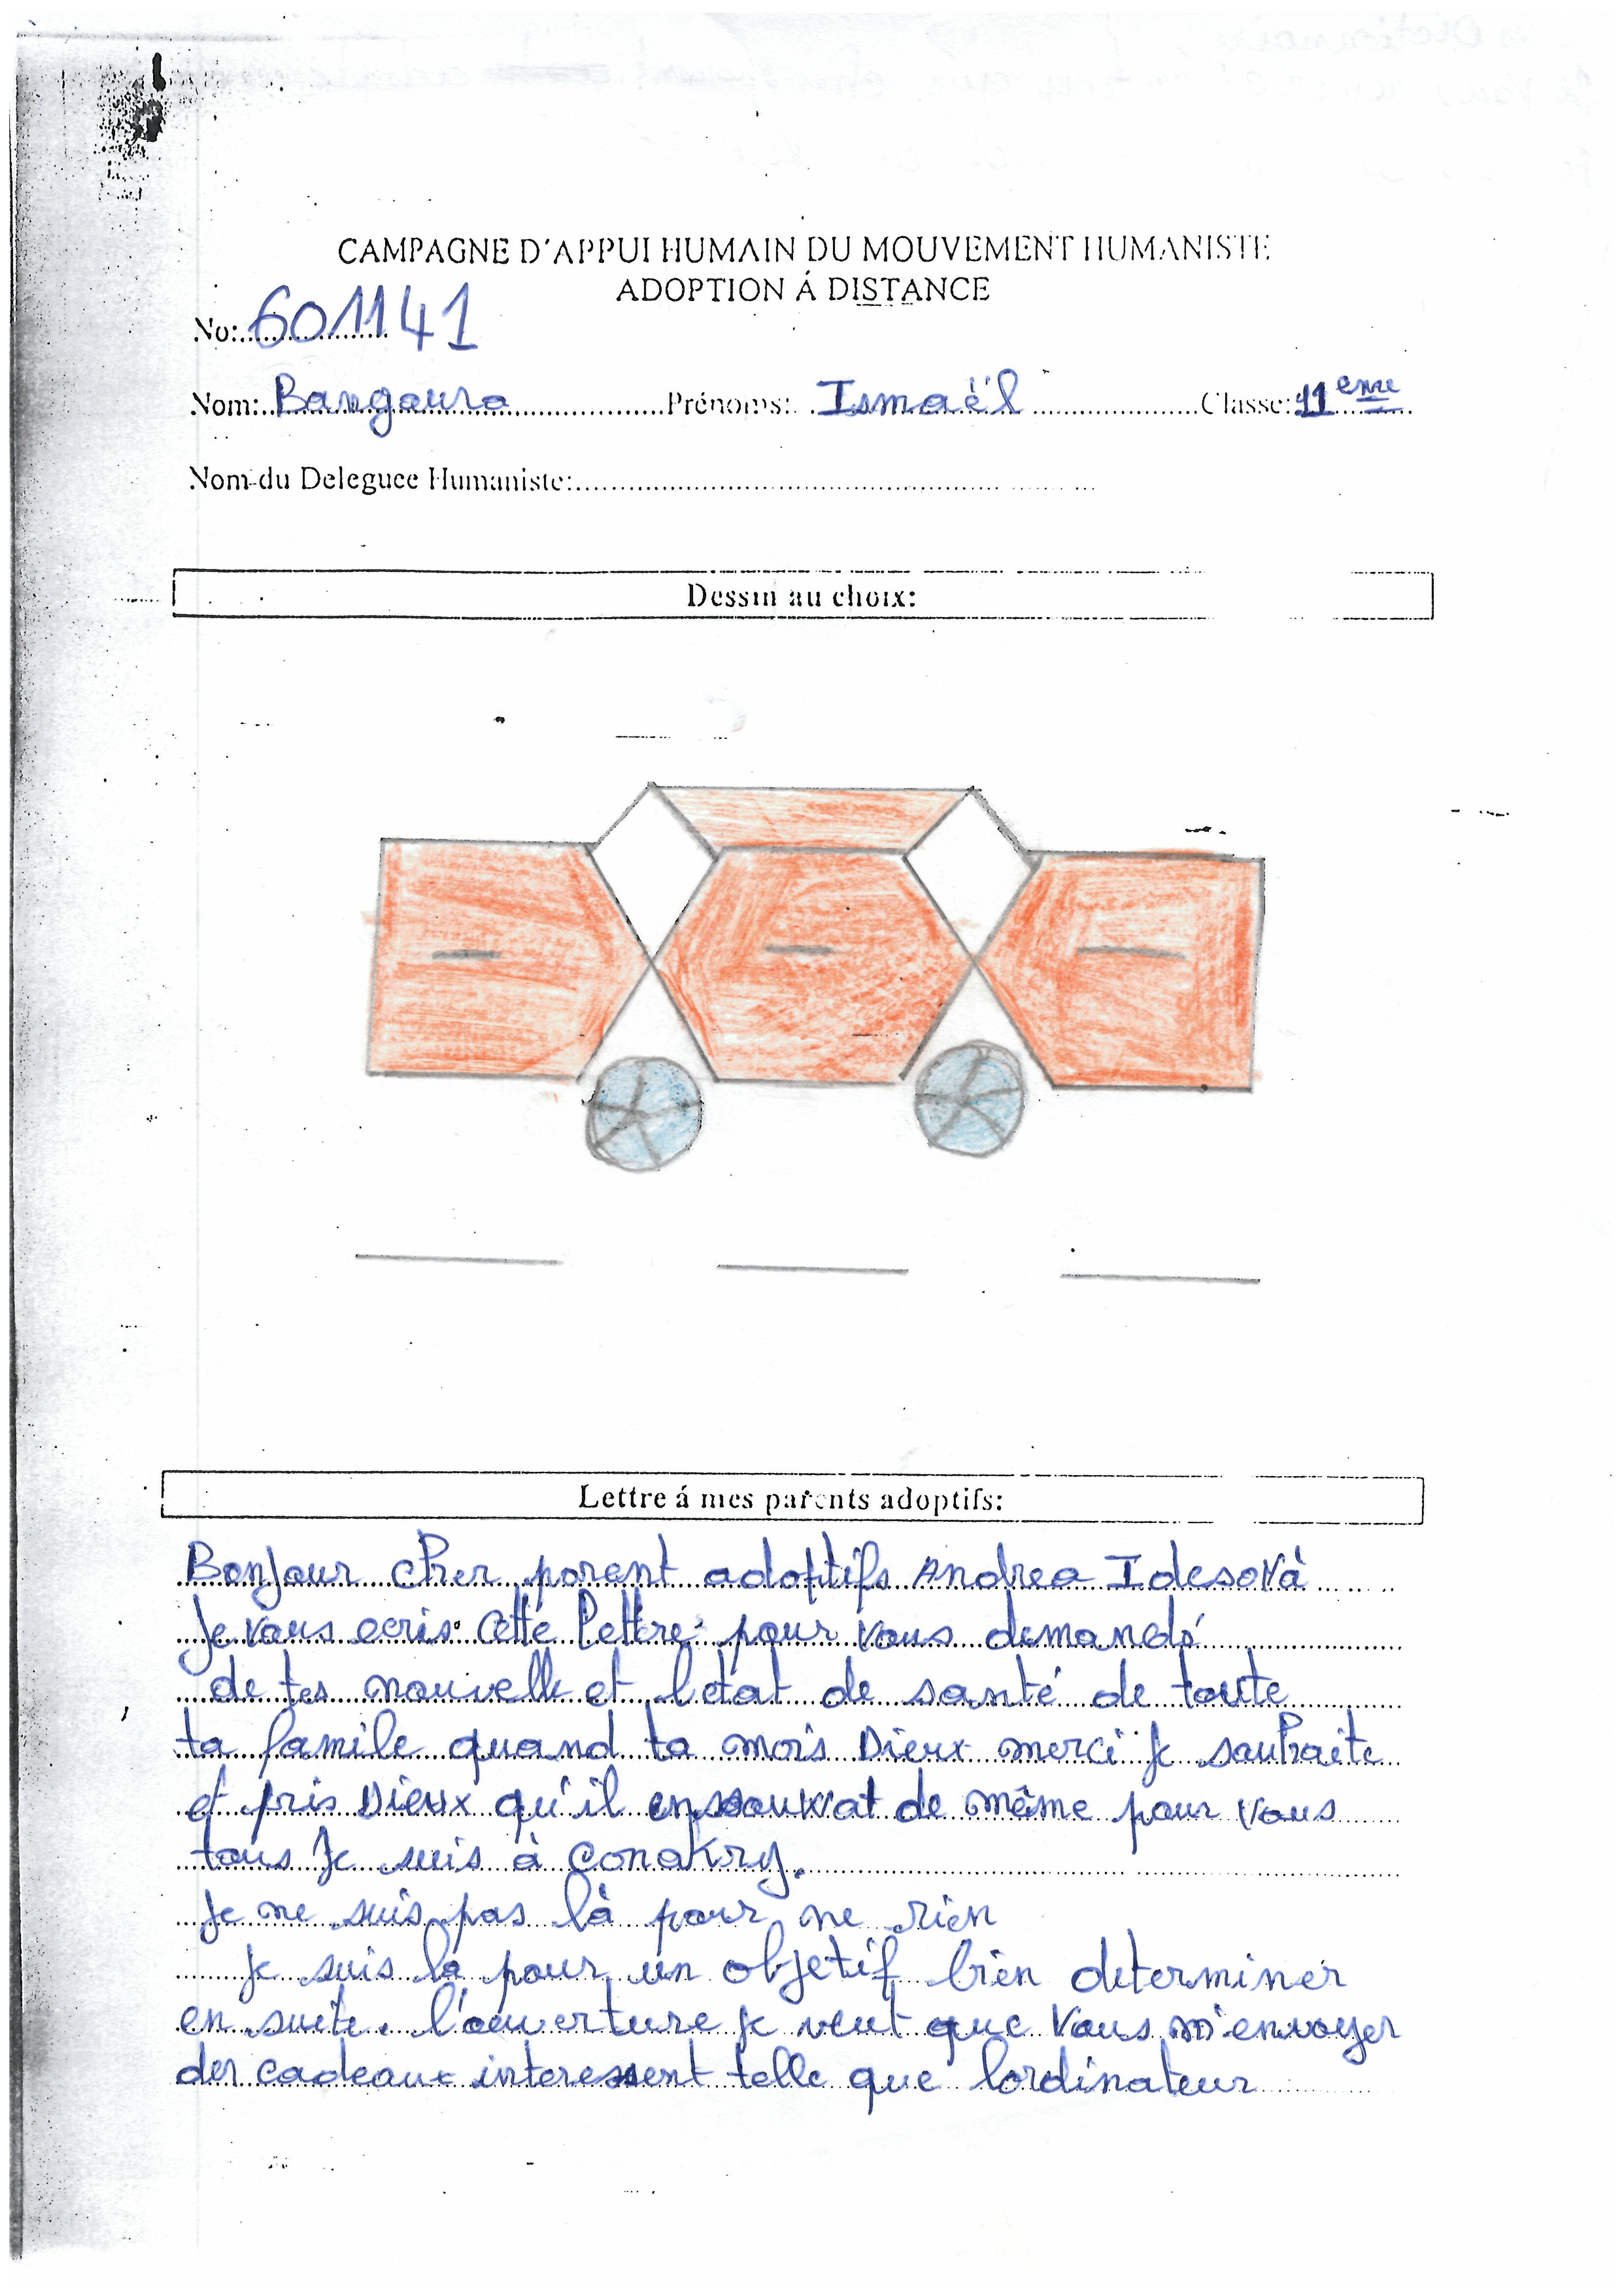 CAMPAGNE D'APPUI HUMAIN DU MOUVEMENT HUMANISTE
ADOPTION Á DISTANCE
No: 601141
Nom: Bangoura Prénoms: Ismaël Classe: 11eme
Nom du Deleguee Humaniste:
Dessin au choix:
Lettre á mes parents adoptifs:
Bonjour cher parent adoptifs Andrea Idesovà
Je vous ecris cette lettre pour vous demandé
de tes nouvelle et l'etat de santé de toute
ta famile quand ta mois Dieux merci je souhaite
et pris Dieux qu'il en de même pour vous
tous Je suis à Conakry.
Je ne suis pas là pour ne rien
je suis là pour un objetif bien determiner
en suite. l'ouverture je veut que vous m'envoyer
des cadeaux interessent telle que lordinateur